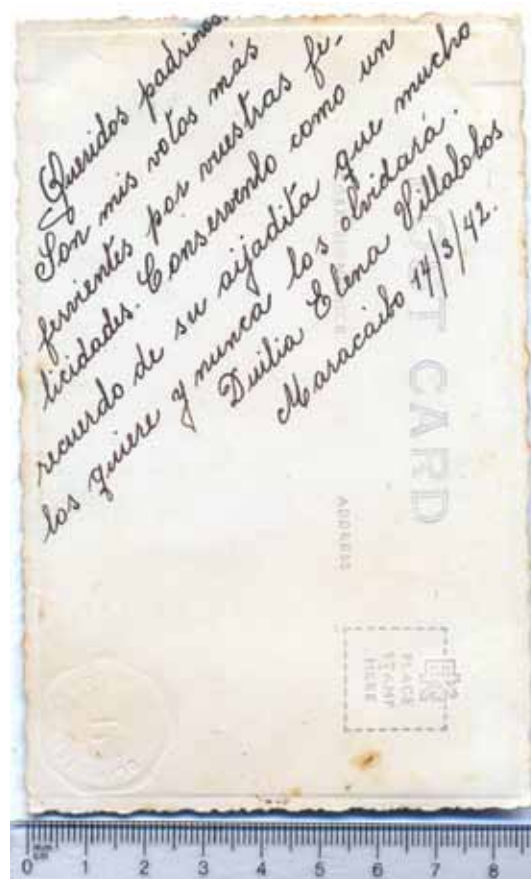 Queridos padrinos.
Son mis votos más
fervientes por vuestras fe-
licidades. Conservenlo como un
recuerdo de su aijadita que mucho
los quiere y nunca los olvidará.
Duilia Elena Villalobos
Maracaibo 14/3/42.
POST CARD
ADDRESS
PLACE
STAMP
HERE
0 1 2 3 4 5 6 7 8